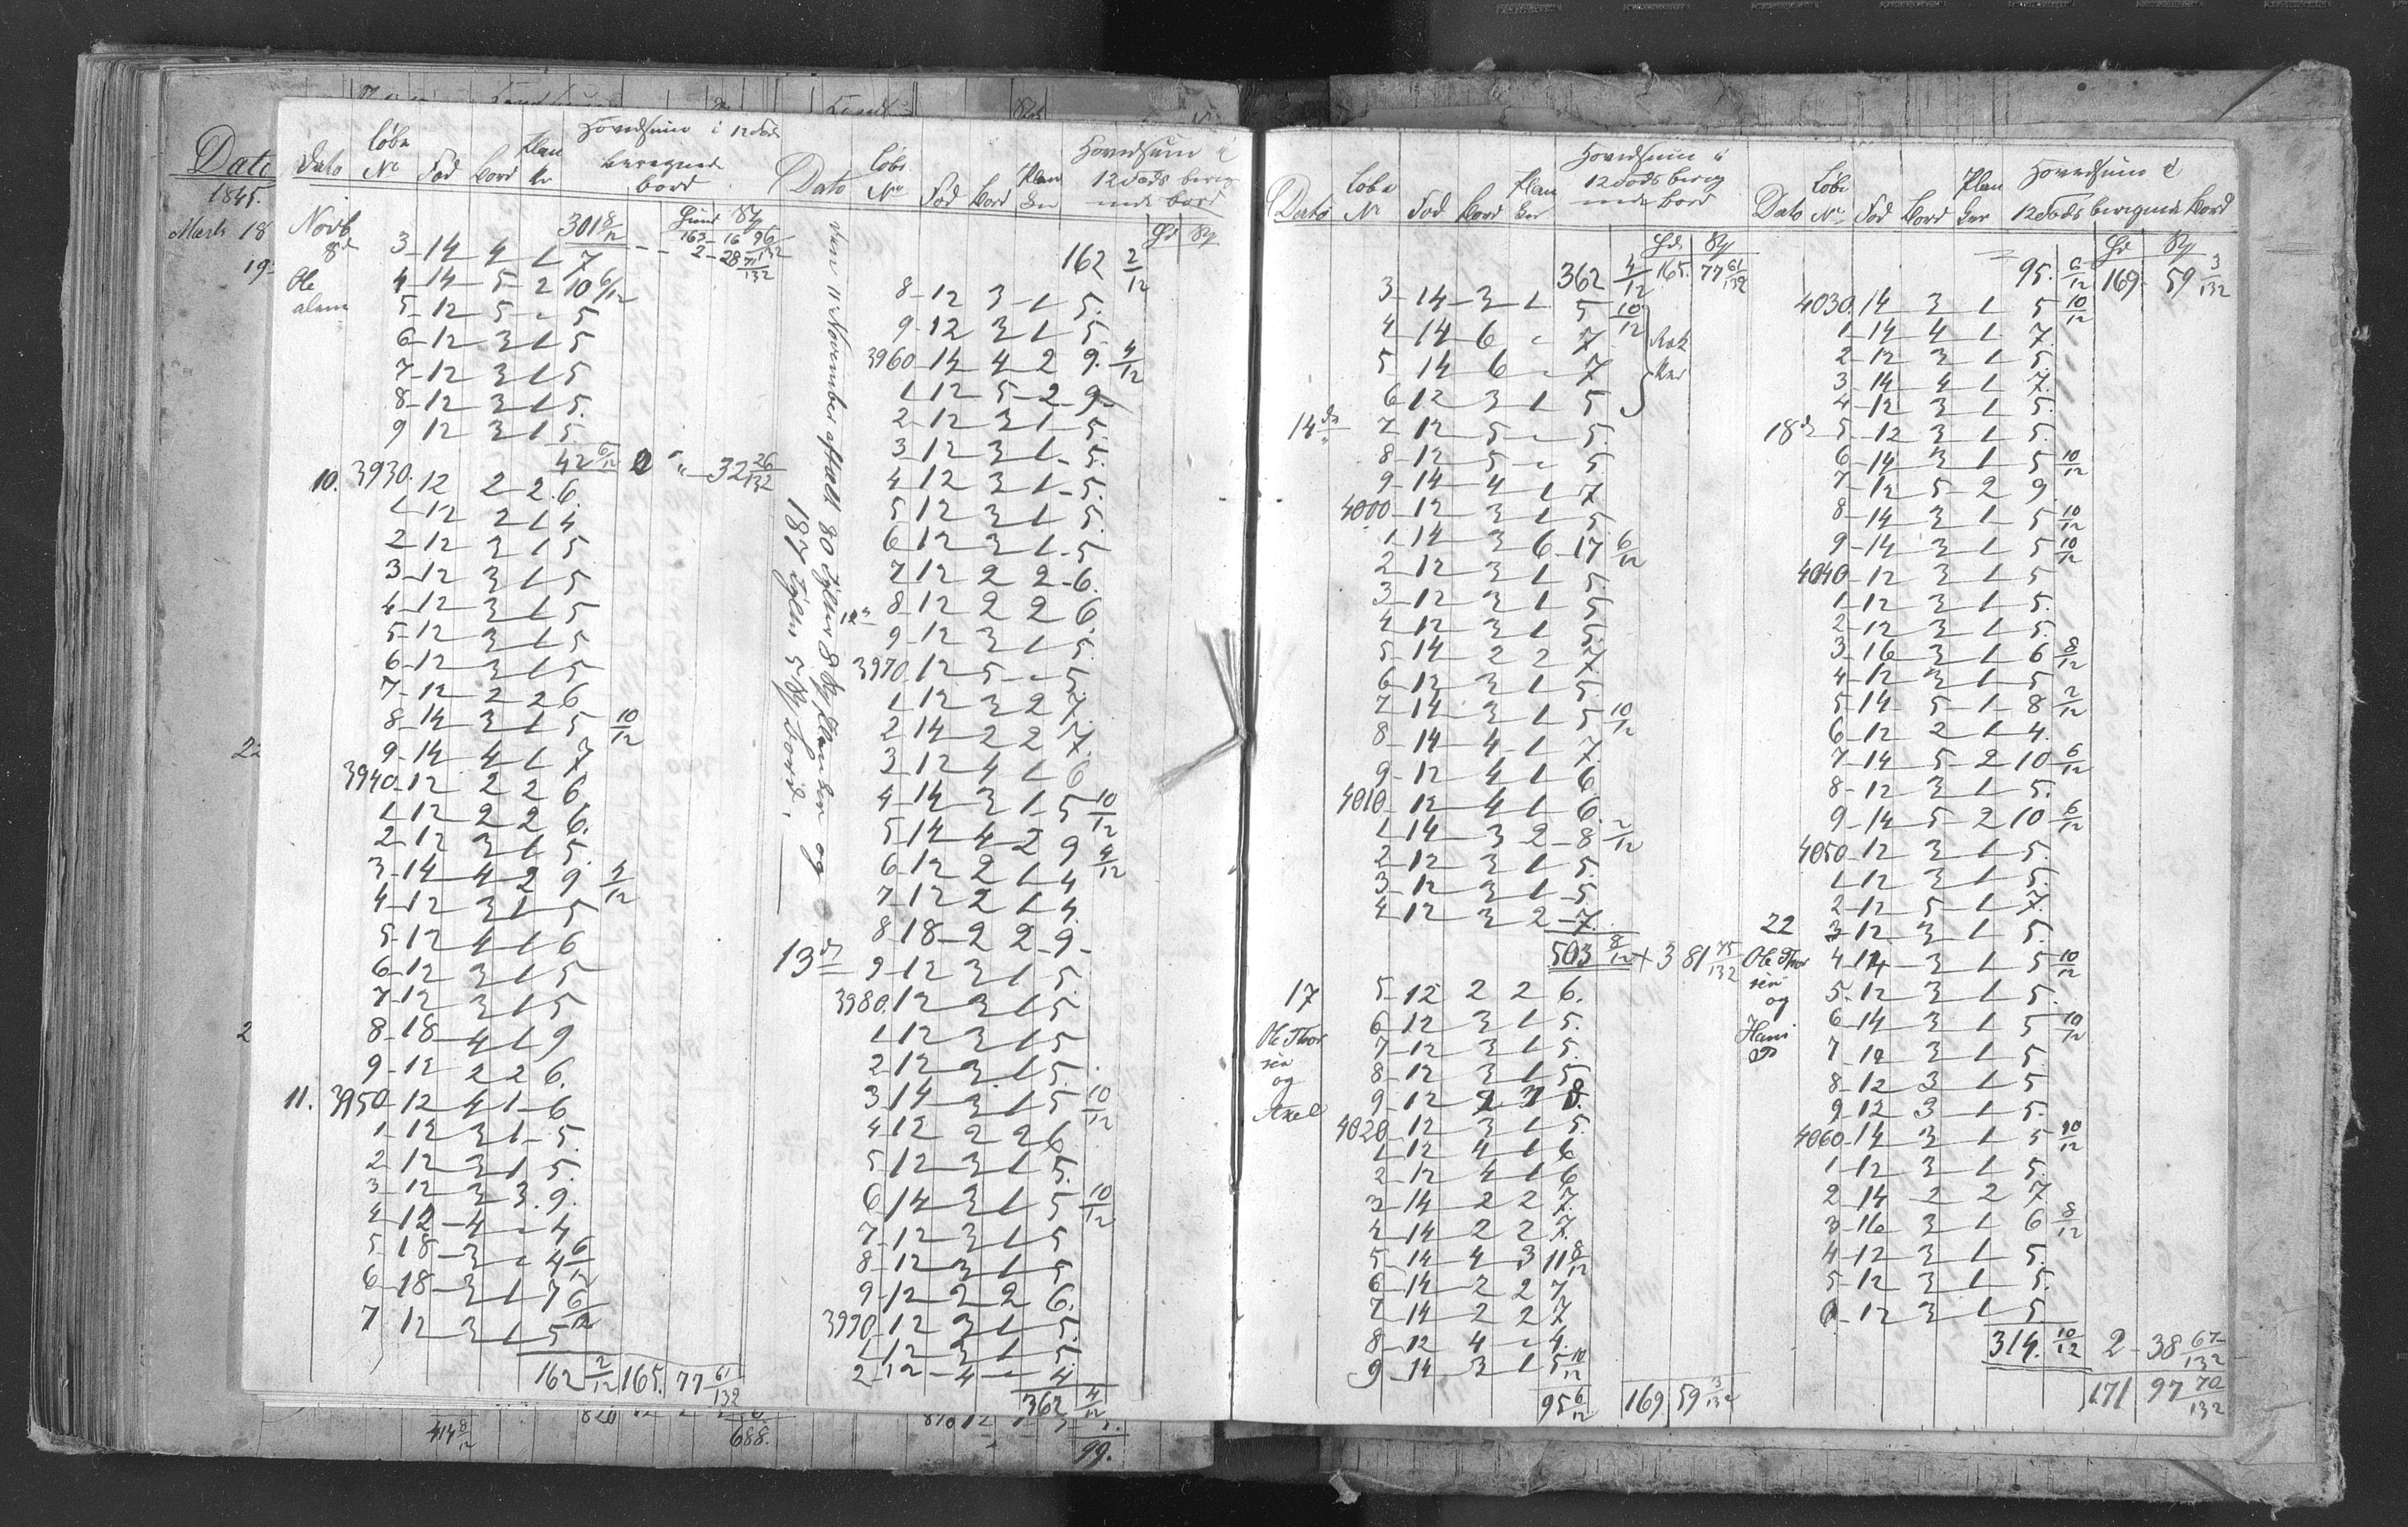 Dato
1845.
Marts 18
19
22
2
Dato Løbe No Fod Bord Planker Hovedsum i 12 Fods beregnede bord
Novb 301 8/12 Hund Sty
8de 163 - 16 96/132
3 - 14 4 1 7 - - 2 - 28 71/132
Ole alene 4 - 14 - 5 - 2 10 6/12
5 - 12 5 - " 5
6 - 12 3 1 5
7 - 12 3 1 5
8 - 12 3 1 5.
9 12 3 1 5
42 6/12 " - 32 26/132
10. 3930. 12 2 2 6.
1 - 12 2 1 4
2 - 12 3 1 5
3 - 12 3 1 5
4 - 12 3 1 5
5 - 12 3 1 5
6 - 12 3 1 5
7 - 12 2 2 6
8 - 14 3 1 5 10/12
9 - 14 4 1 7
3940 - 12 2 2 6
1 12 2 2 6.
2 - 12 3 1 5.
3 - 14 4 2 9. 4/12
4 - 12 3 1 5
5 - 12 4 1 6
6 - 12 3 1 5
7 - 12 3 1 5
8 - 18 4 1 9
9 - 12 2 2 6.
11. 3950 - 12 4 1 - 6
1 - 12 3 1 - 5.
2 - 12 3 1 5.
3 - 12 3 3. 9.
4 - 12 - 4 - " 4
5 - 18 - 3 - " 4 6/12
6 - 18 - 3 - 1 7 6/12
7 12 - 3 1 5
162 2/12 165. 77 61/132
den 11 November aftalt 80 Tylter 8 Sty Planker og
187 Tylter 5 Sty Bord.
Dato Løbe No Fod Bord Planker Hovedsum i 12 Fods beregnede bord
Hd Sty
162 2/12
8 - 12 3 - 1 5.
9 - 12 3 1 5
3960 - 14 4 - 2 9. 4/12
1 12 5 - 2 - 9
2 - 12 3 1 - 5.
3 - 12 3 1 - 5.
4 - 12 3 1 - 5.
5 12 3 1 5.
6 12 3 1 - 5
7 12 2 2 - 6.
12te 8 - 12 2 2 6.
9 - 12 3 1 5.
3970. 12 - 5 - " 5.
1 12 3 2 7.
2 14 - 2 2 7.
3 - 12 4 1 6
4 - 14 - 3 1 - 5 10/12
5 14 4 - 2 9 4/12
6 - 12 2 1 4
7 - 12 2 1 4.
8 - 18 - 2 2 - 9 -
13de 9 - 12 3 1 5.
3980. 12 3 1 5
1 12 3 1 5
2 12 3 1 5.
3 14 3 1 5 10/12
4 12 2 2 6
5 - 12 3 1 5.
6 14 - 3 1 5 10/12
7 - 12 3 1 5
8 - 12 3 1 5
9 - 12 2 2 6.
3990 - 12 3 1 5.
1 12 3 1 5.
2 - 12 - 4 - " 4.
362 4/12
414 8/12
688.
99.
Dato Løbe No Fod Bord Planker Hovedsum i 12 Fods beregnede bord
Hd Sty
362 4/12 165. 77 61/132
3 - 14 - 3 - 1 5 10/12
4 - 14 6 " 7
5 14 6 - " 7
6 12 3 1 5
14de 7 12 - 5 - " 5.
8 - 12 5 - " 5
9 - 14 - 4 1 7
4000 - 12 3 1 5
1 - 14 3 6 - 17 6/12
2 - 12 3 1 5.
3 - 12 3 1 5
4 - 12 3 1 5.
5 - 14 2 2 7.
6 - 12 3 1 5.
7 14 - 3 1 5 10/12
8 - 14 - 4 - 1 7.
9 - 12 4 1 6.
4010 - 12 4 1 6
1 14 3 2 - 8 2/12
2 - 12 3 1 5.
3 - 12 3 1 - 5
4 - 12 3 2 - 7.
503 8/12 + 3 81 75/132
17 5 - 12 2 2 6.
Ole Thorsen og Axel 6 - 12 3 1 5.
7 - 12 3 1 5.
8 - 12 3 1 5
9 - 12 2 3 8.
4020 - 12 3 1 5.
1 - 12 4 1 6
2 - 12 4 1 6
3 - 14 2 2 7.
4 - 14 2 2 7.
5 - 14 4 3 11 8/12
6 - 14 - 2 2 7
7 - 14 - 2 2 7
8 - 12 4 - " 4.
9 - 14 - 3 1 5 10/12
95 6/12 169 59 3/132
Dato Løbe No Fod Bord Planker Hovedsum i 12 Fods beregnede Bord
Hd Sty
95. 6/12 169 - 59 3/132
4030. 14 3 1 5 10/12
1 - 14 4 1 7.
2 - 12 3 1 5.
3 - 14 4 1 7.
4 - 12 3 1 5.
18de 5 - 12 3 1 5.
6 - 14 3 1 5 10/12
7 - 12 5 - 2 9
8 - 14 3 1 5 10/12
9 - 14 3 1 5 10/12
4040 - 12 3 1 5
1 - 12 3 1 5.
2 - 12 3 1 5.
3 - 16 3 1 6 8/12
4 - 12 3 1 5
5 - 14 5 - 1 - 8 2/12
6 - 12 2 1 4.
7 - 14 5 - 2 10 6/12
8 - 12 3 1 5.
9 - 14 5 2 10 6/12
4050 - 12 3 1 5.
1 - 12 3 1 5.
2 - 12 5 - 1 7
22 3 - 12 3 1 5.
Ole Thorsen og Hans 4 - 14 3 1 5 10/12
5 - 12 3 1 5.
6 - 14 3 1 5 10/12
7 - 12 3 1 5
8 - 12 3 1 5
9 12 3 1 5.
4060 - 14 3 1 5 10/12
1 - 12 3 1 5.
2 - 14 2 2 7
3 - 16 3 1 6 8/12
4 - 12 3 1 5.
5 - 12 3 1 5.
6 - 12 3 1 5.
314. 10/12 2 - 38 67/132
171 97 70/132